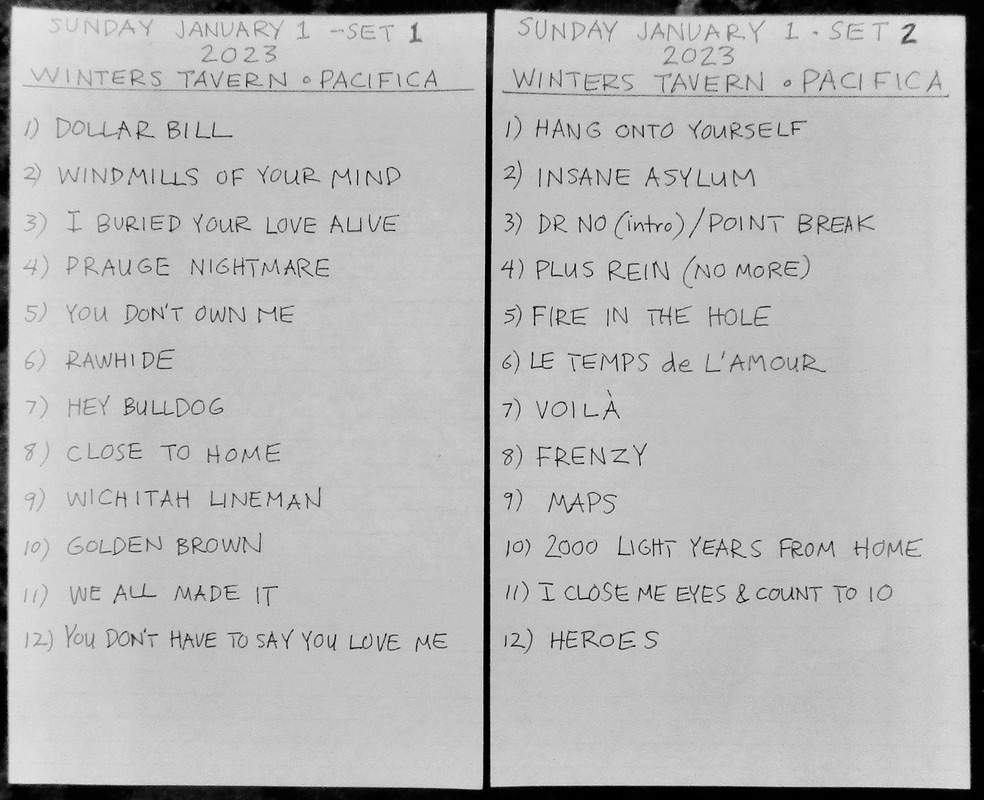 SUNDAY JANUARY 1 - SET 1
2023
WINTERS TAVERN • PACIFICA
1) DOLLAR BILL
2) WINDMILLS OF YOUR MIND
3) I BURIED YOUR LOVE ALIVE
4) PRAUGE NIGHTMARE
5) YOU DON'T OWN ME
6) RAWHIDE
7) HEY BULLDOG
8) CLOSE TO HOME
9) WICHITAH LINEMAN
10) GOLDEN BROWN
11) WE ALL MADE IT
12) YOU DON'T HAVE TO SAY YOU LOVE ME
SUNDAY JANUARY 1 • SET 2
2023
WINTERS TAVERN • PACIFICA
1) HANG ONTO YOURSELF
2) INSANE ASYLUM
3) DR NO (intro) / POINT BREAK
4) PLUS REIN (NO MORE)
5) FIRE IN THE HOLE
6) LE TEMPS de L'AMOUR
7) VOILÀ
8) FRENZY
9) MAPS
10) 2000 LIGHT YEARS FROM HOME
11) I CLOSE ME EYES & COUNT TO 10
12) HEROES